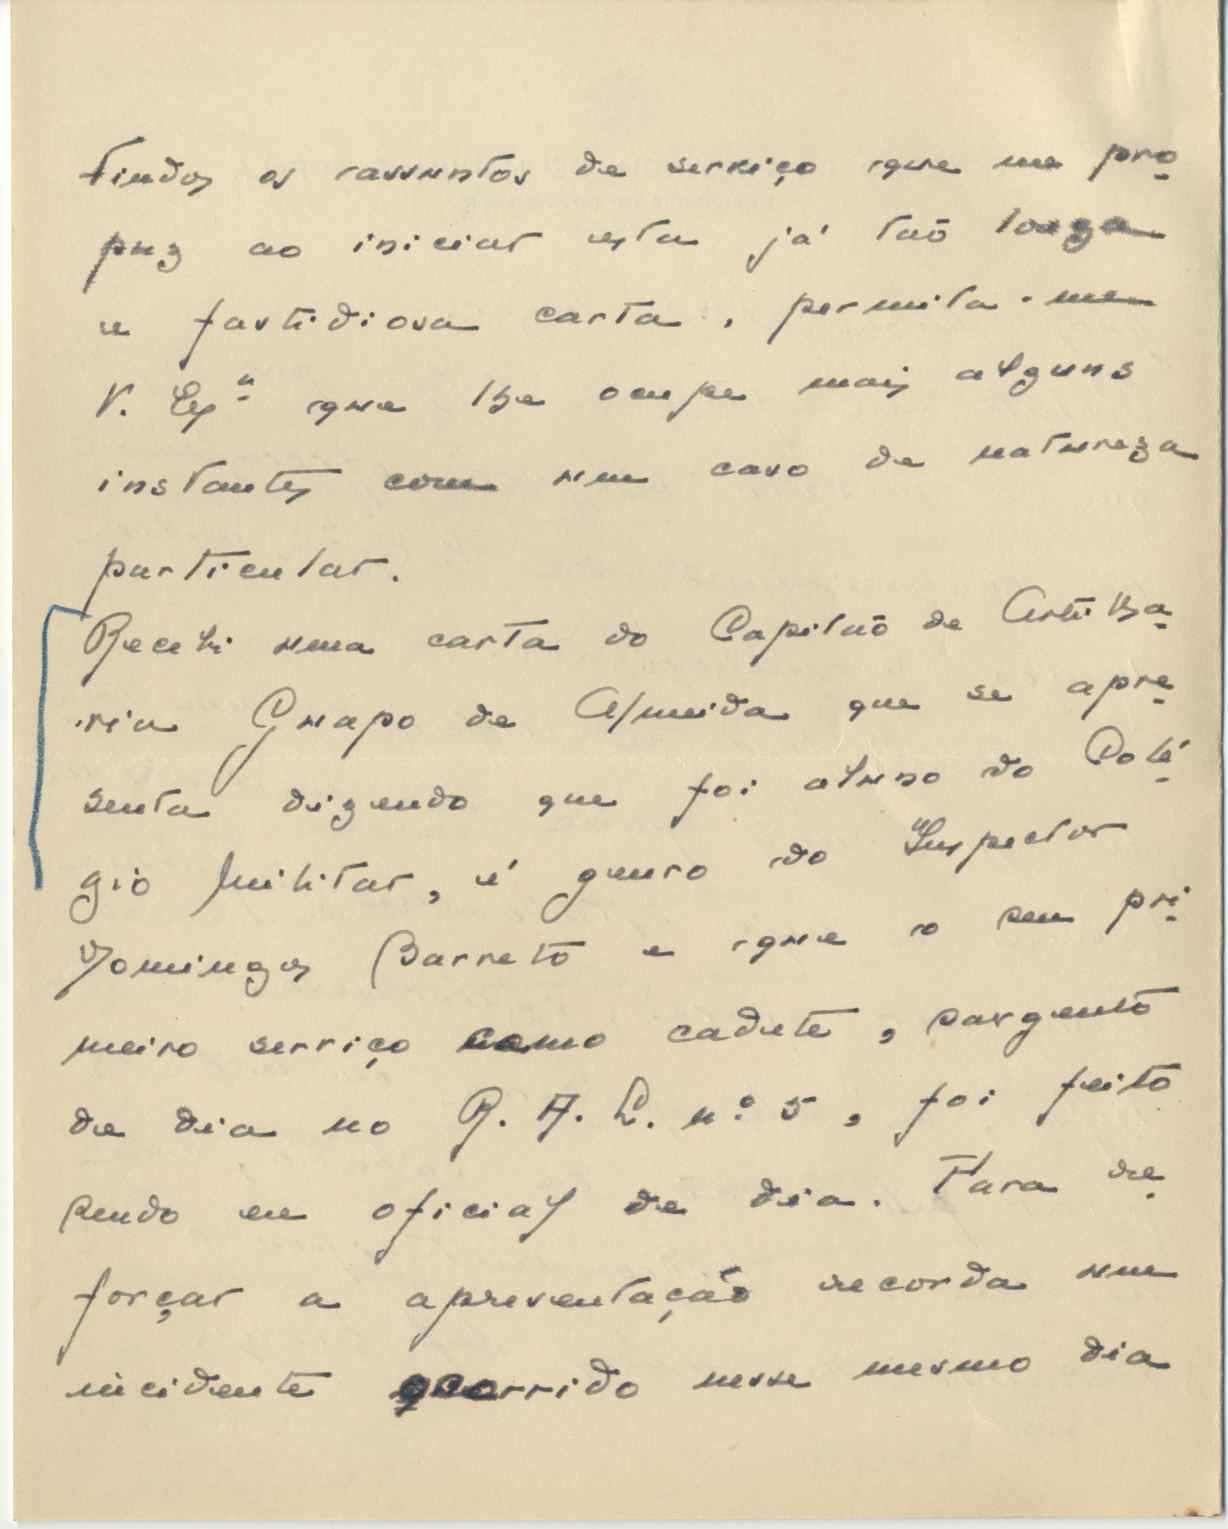 Findos os assuntos de serviço que me pro-
puz ao iniciar esta já tão longa
e fastidiosa carta, permita-me
V. Exª que lhe ocupe mais alguns
instantes com um caso de natureza
particular.
Recebi uma carta do Capitão de Artilha-
ria Guapo de Almeida que se apre-
senta dizendo que foi aluno do Colé-
gio Militar, é genro do Inspector
Domingos Barreto e que o seu pri-
meiro serviço como cadete, sargento
de dia no R. A. L. nº 5, foi feito
sendo eu oficial de dia. Para re-
forçar a apresentação recorda um
incidente ocorrido nesse mesmo dia